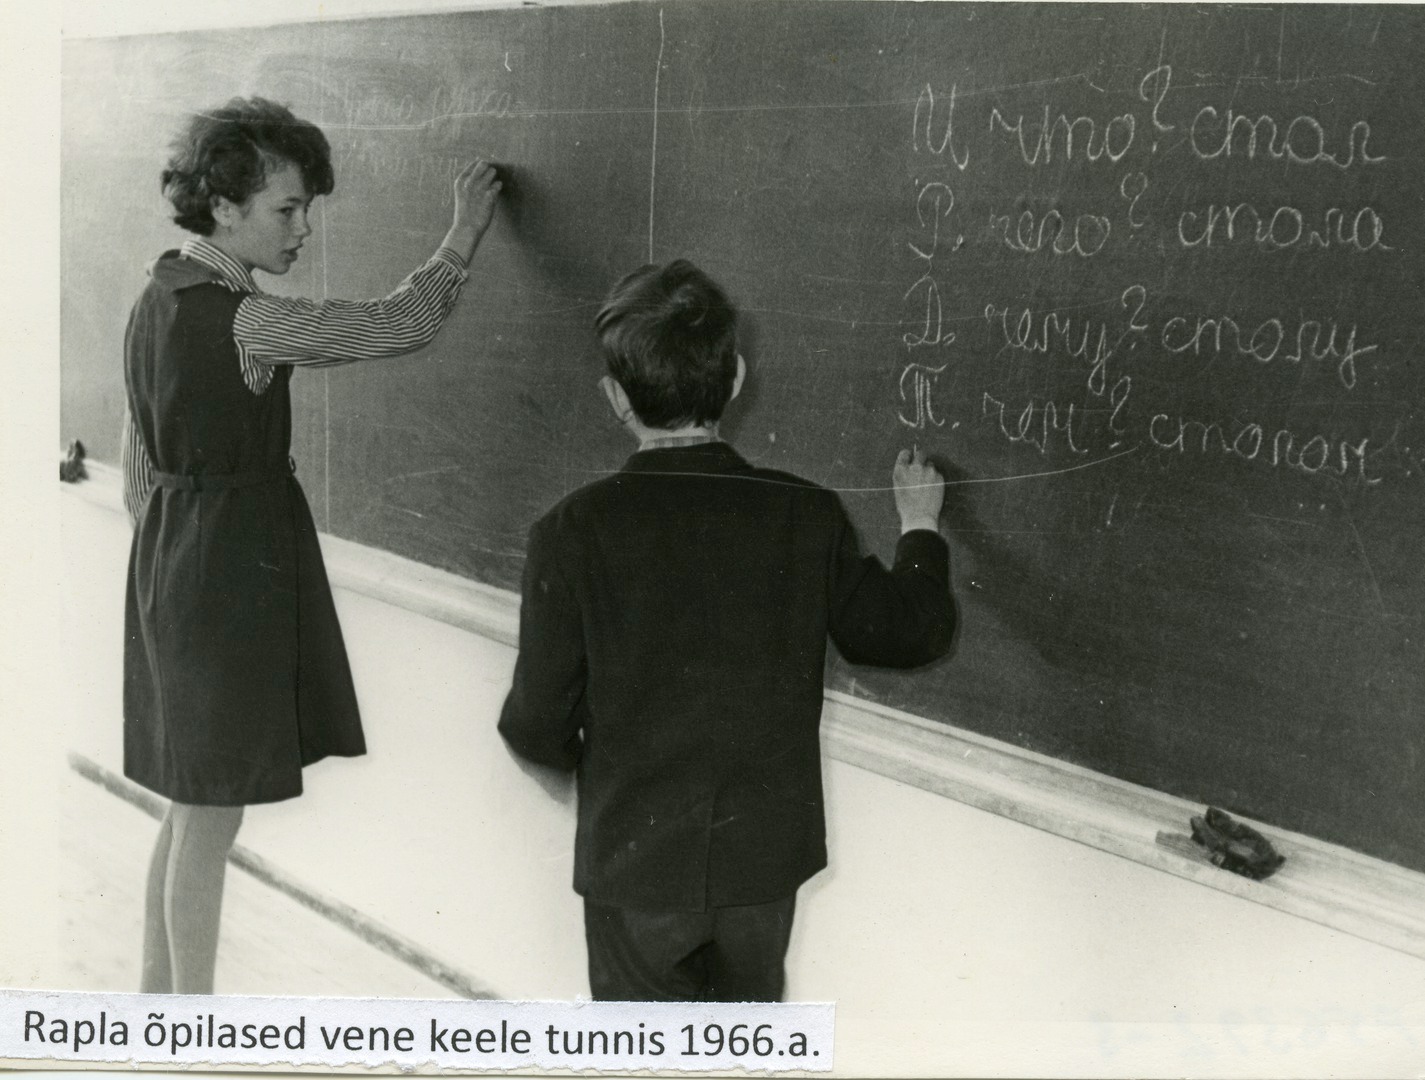 И что? стол
Р. чего? стола
Д. чему? столу
Т. чем? столом
Rapla õpilased vene keele tunnis 1966.a.